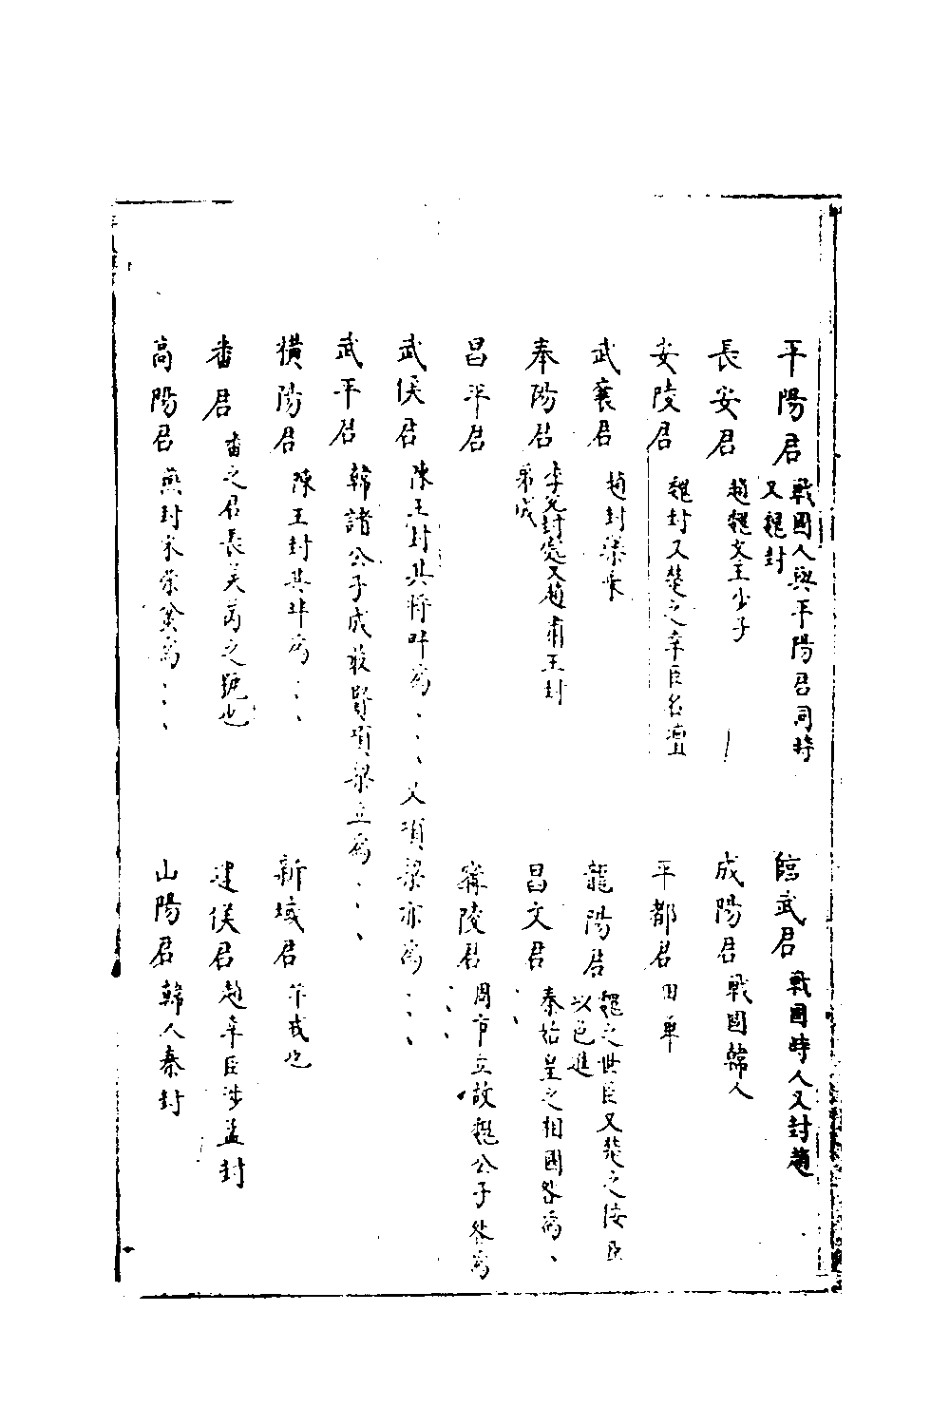 平陽君 戰國人與平陽君同時又魏封
臨武君 戰國時人又封趙
長安君 趙魏文王少子
成陽君 戰國韓人
安陵君 魏封又楚之幸臣名壇
平都君 田單
武襄君 趙封樂乘
龍陽君 魏之世臣又楚之佞臣以色進
奉陽君 李兌封處又趙肅王封弟成
昌文君 秦始皇之相國咎為、
昌平君
寗陵君 周市立故魏公子咎為、、、
武侯君 陳王封其將叶為、、、又項梁亦為、、、
武平君 韓諸公子成敖賢項梁立為、、、
橫陽君 陳王封其叶為、、、
新城君 芈戎也
番君 番之君長吴芮之號也
建侯君 趙幸臣涉孟封
高陽君 燕封宋榮蚠為、、、
山陽君 韓人秦封